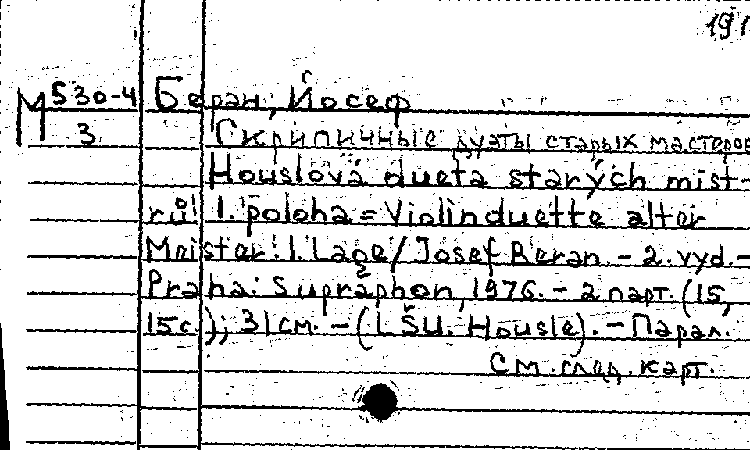 191
М530-4 Беран, Йосеф
3 Скрипичные дуэты старых мастеров
Houslová dueta starých mist-
rů! 1. poloha = Violinduette alter
Meister! 1. Lage / Josef Beran. - 2. vyd. -
Praha: Supraphon, 1976. - 2 парт. (15,
15с.); 31см. - (LŠU. Housle). - Парал.
См. след. карт.